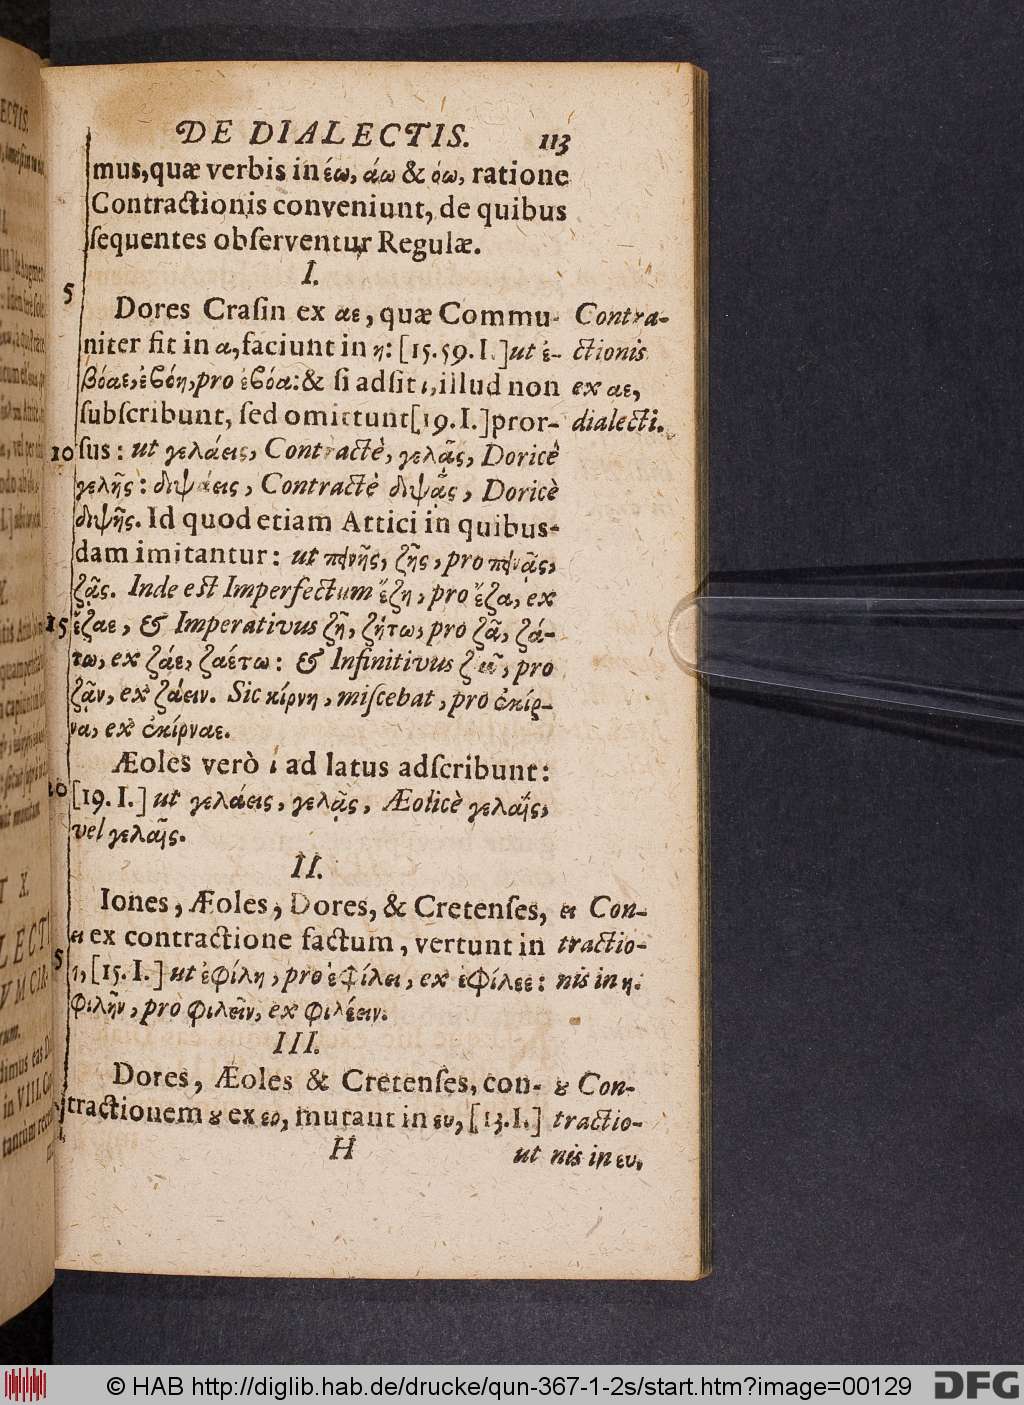 DE DIALECTIS. 113
mus,quæ verbis in έω, άω & όω, ratione
Contractionis conveniunt, de quibus
ſequentes obſerventur Regulæ.
I.
5
Dores Craſin ex αε, quæ Commu-
niter fit in α, faciunt in η: [15.59.I.] ut ἐ-
βόαε, ἐβόη, pro ἐβόα: & ſi adſit ι, illud non
ſubſcribunt, ſed omittunt [19.I.] pror-
10 ſus: ut γελάεις, Contractè, γελᾷς, Doricè
γελῆς: διψάεις, Contractè διψᾷς, Doricè
διψῆς. Id quod etiam Attici in quibus-
dam imitantur: ut πεινῆς, ζῆς, pro πεινᾷς,
ζᾷς. Inde eſt Imperfectum ἔζη, pro ἔζα, ex
15 ἔζαε, & Imperativus ζῆ, ζήτω, pro ζᾶ, ζά-
τω, ex ζάε, ζαέτω: & Infinitivus ζῆν, pro
ζᾷν, ex ζάειν. Sic κίρνη, miſcebat, pro ἐκίρ-
να, ex ἐκίρναε.
Æoles verò ι ad latus adſcribunt:
[19.I.] ut γελάεις, γελᾷς, Æolicè γελαΐς,
vel γελαῖς.
II.
Iones, Æoles, Dores, & Cretenſes,
ει ex contractione factum, vertunt in
5 η, [15.I.] ut ἐφίλη, pro ἐφίλει, ex ἐφίλεε:
φιλῆν, pro φιλεῖν, ex φιλέειν.
III.
Dores, Æoles & Cretenſes, con-
tractionem ȣ ex εο, mutant in ευ, [13.I.]
H ut
Contra-
ctionis
ex αε,
dialecti.
ει Con-
tractio-
nis in η.
ȣ Con-
tractio-
nis in ευ.
© HAB http://diglib.hab.de/drucke/qun-367-1-2s/start.htm?image=00129
DFG